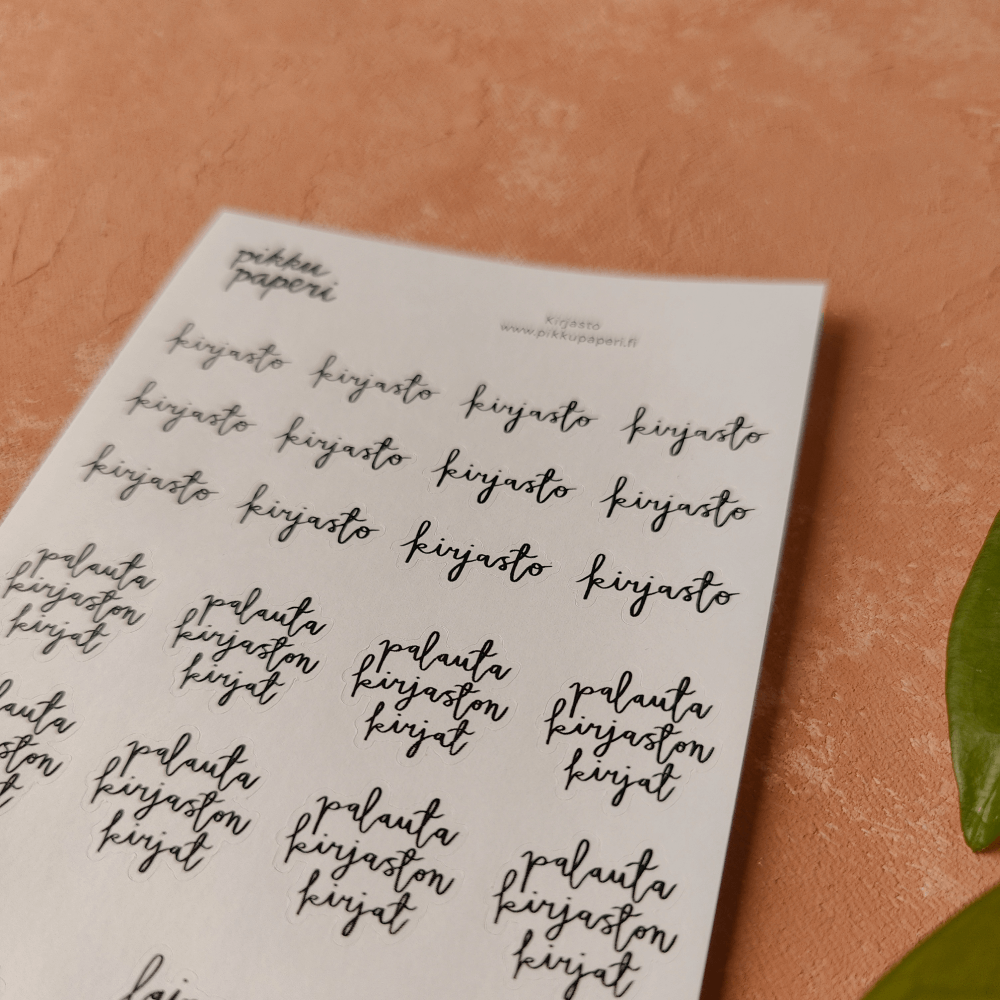 pikku
paperi
Kirjasto
www.pikkupaperi.fi
kirjasto kirjasto kirjasto kirjasto
kirjasto kirjasto kirjasto kirjasto
kirjasto kirjasto kirjasto kirjasto
palauta
kirjaston
kirjat
palauta
kirjaston
kirjat
palauta
kirjaston
kirjat
palauta
kirjaston
kirjat
palauta
kirjaston
kirjat
palauta
kirjaston
kirjat
palauta
kirjaston
kirjat